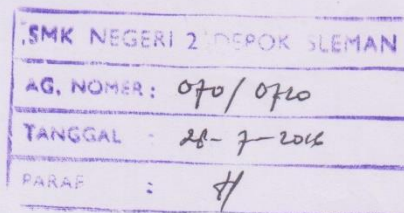 SMK NEGERI 2 DEPOK SLEMAN
AG. NOMER : 070 / 0720
TANGGAL : 28-7-2016
PARAF :